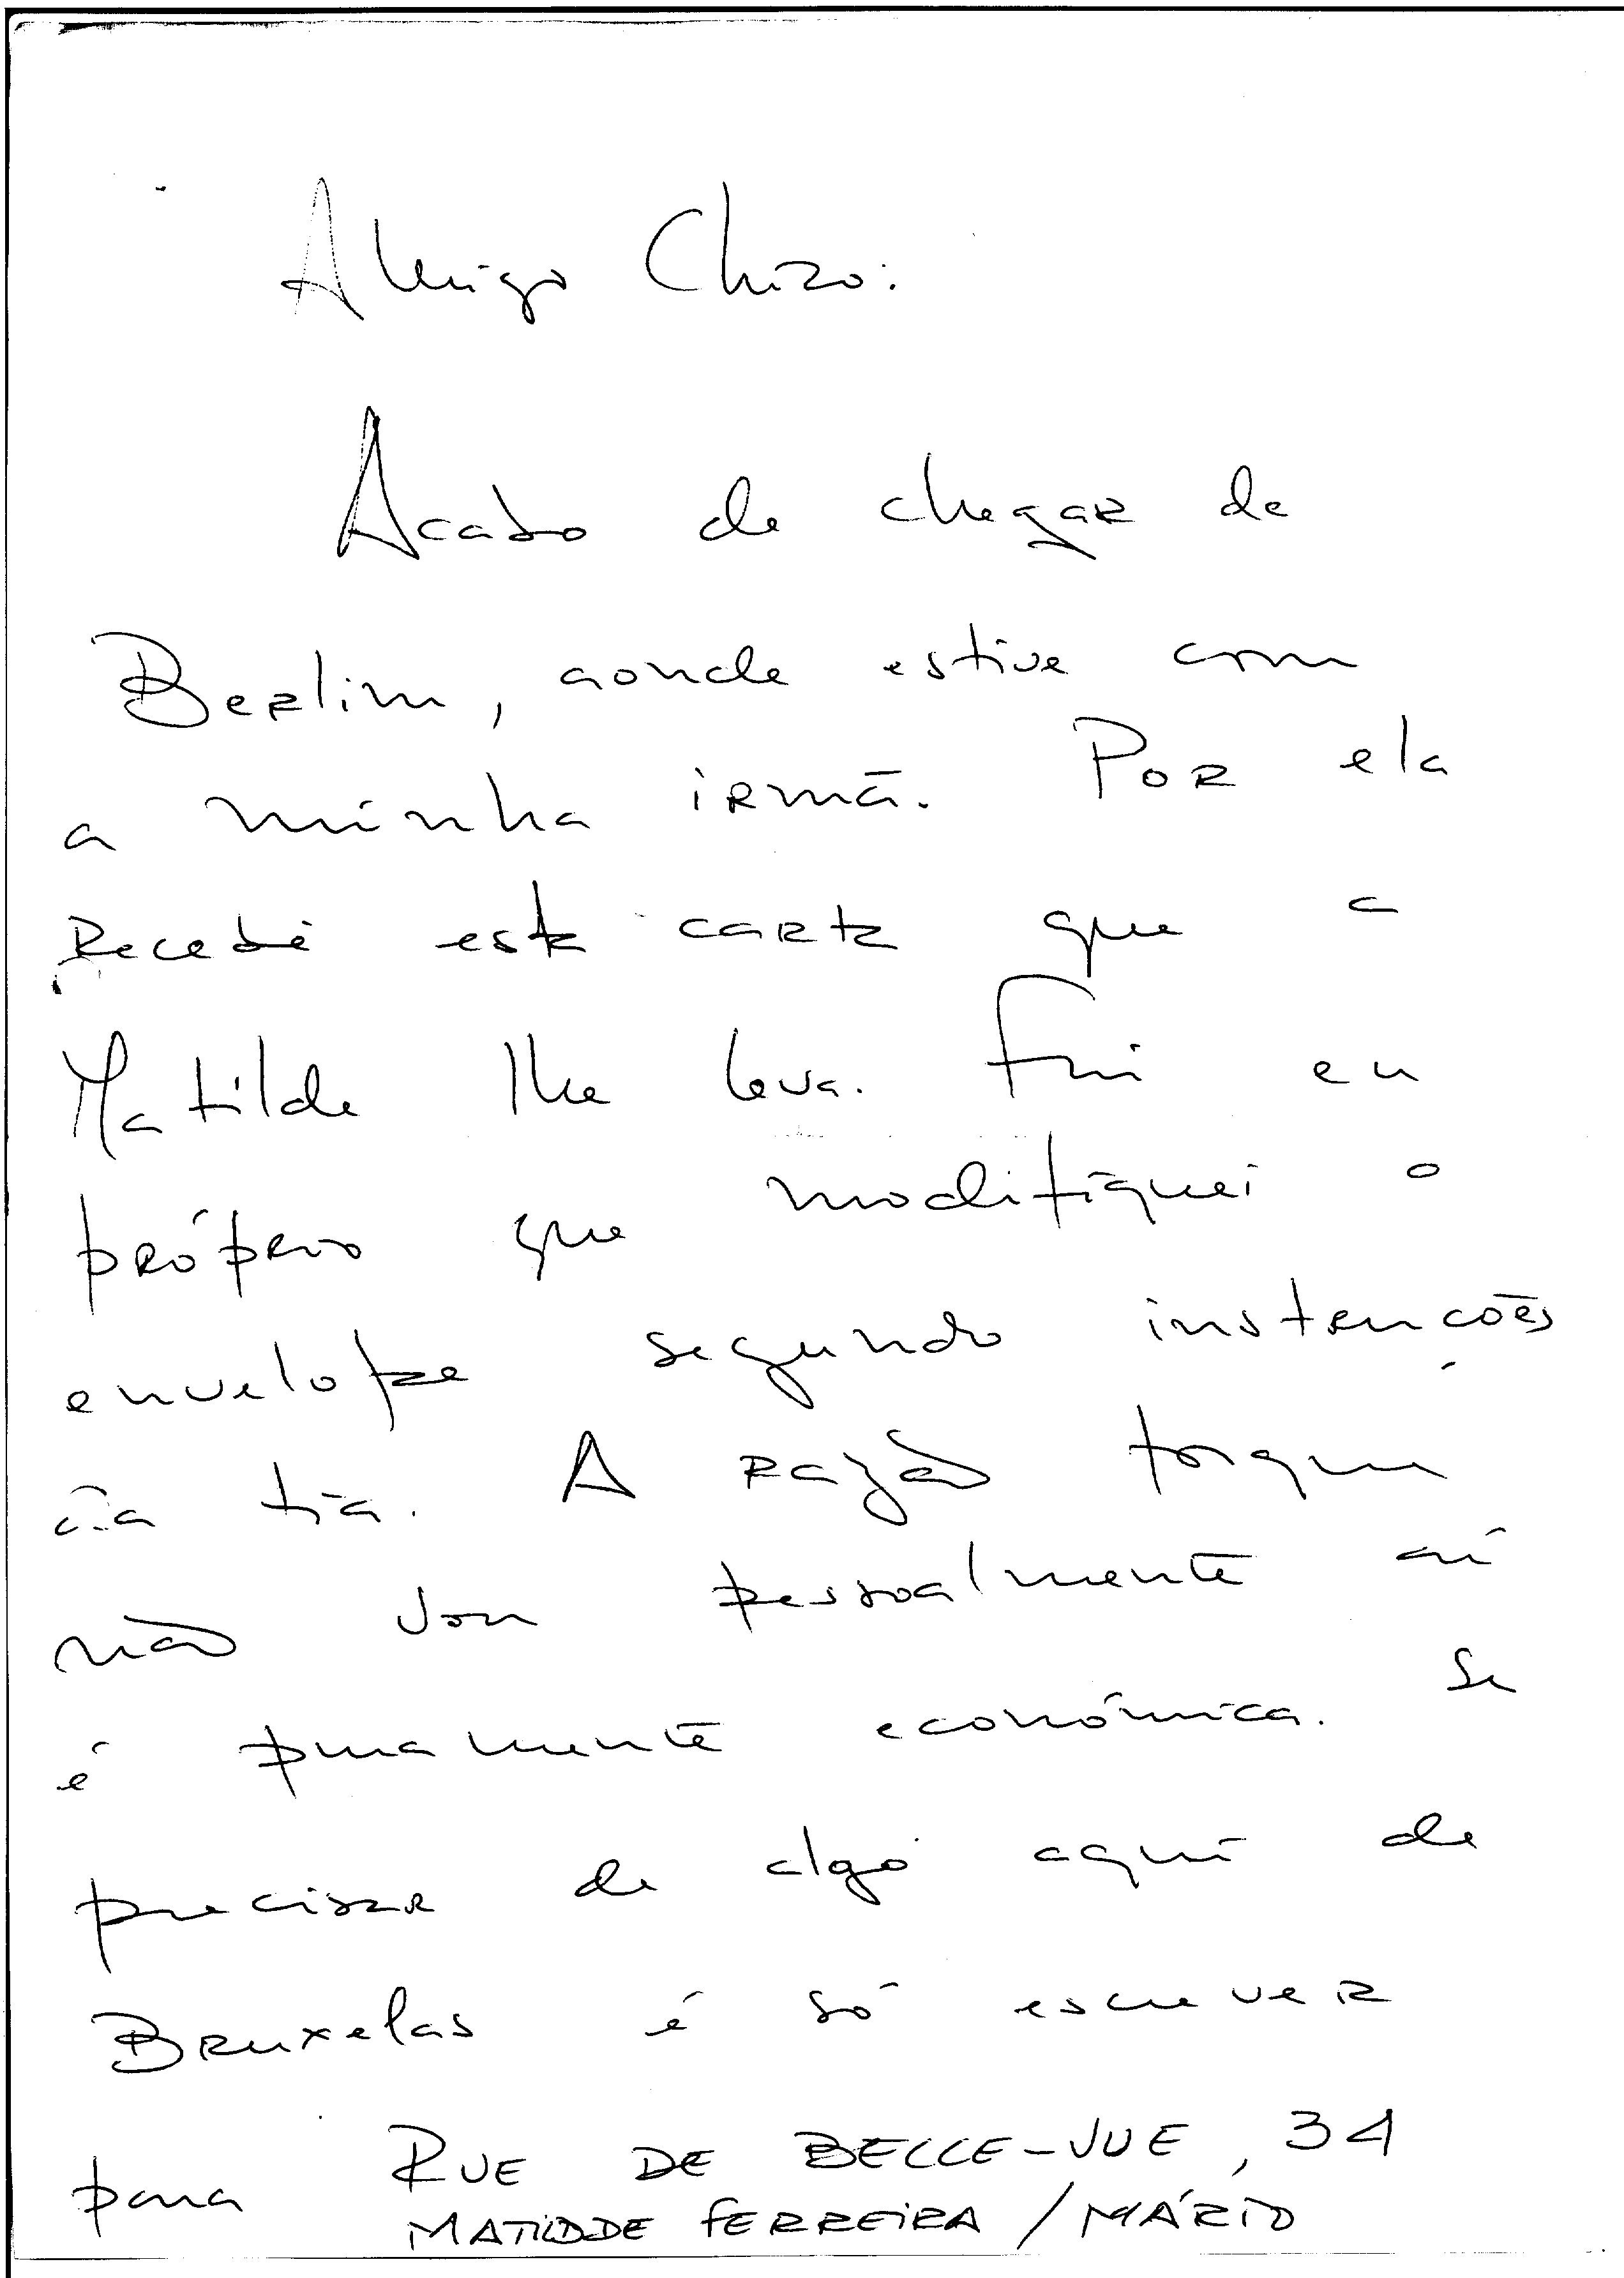 Amigo Chizo:
Acabo de chegar de
Berlim, aonde estive com
a minha irmã. Por ela
recebi esta carta que a
Matilde lhe leva. Fui eu
próprio que modifiquei o
envelope segundo instruções
da tia. A razão porque
não vou pessoalmente aí
é puramente económica. Se
precisar de algo aqui de
Bruxelas é só escrever
para RUE DE BELLE-VUE, 34
MATILDDE FERREIRA / MÁRIO